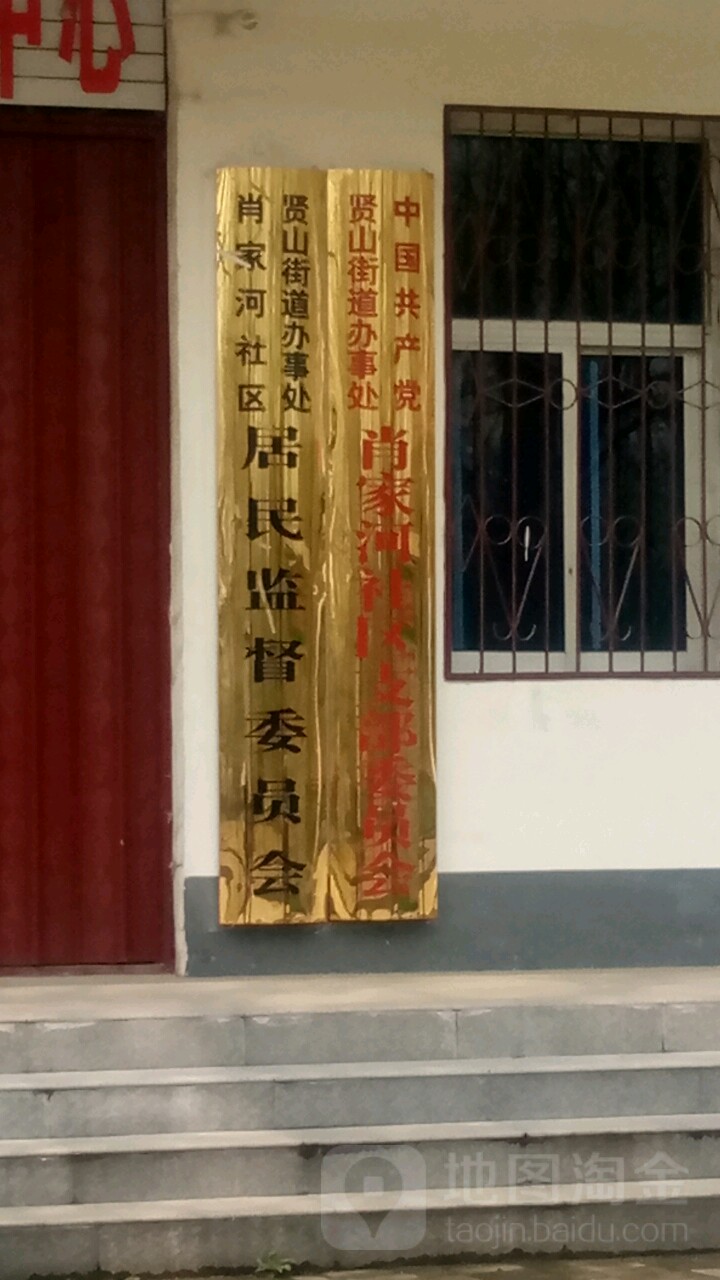 中心
中国共产党
贤山街道办事处
肖家河社区支部委员会
贤山街道办事处
肖家河社区
居民监督委员会
地图淘金
taojin.baidu.com